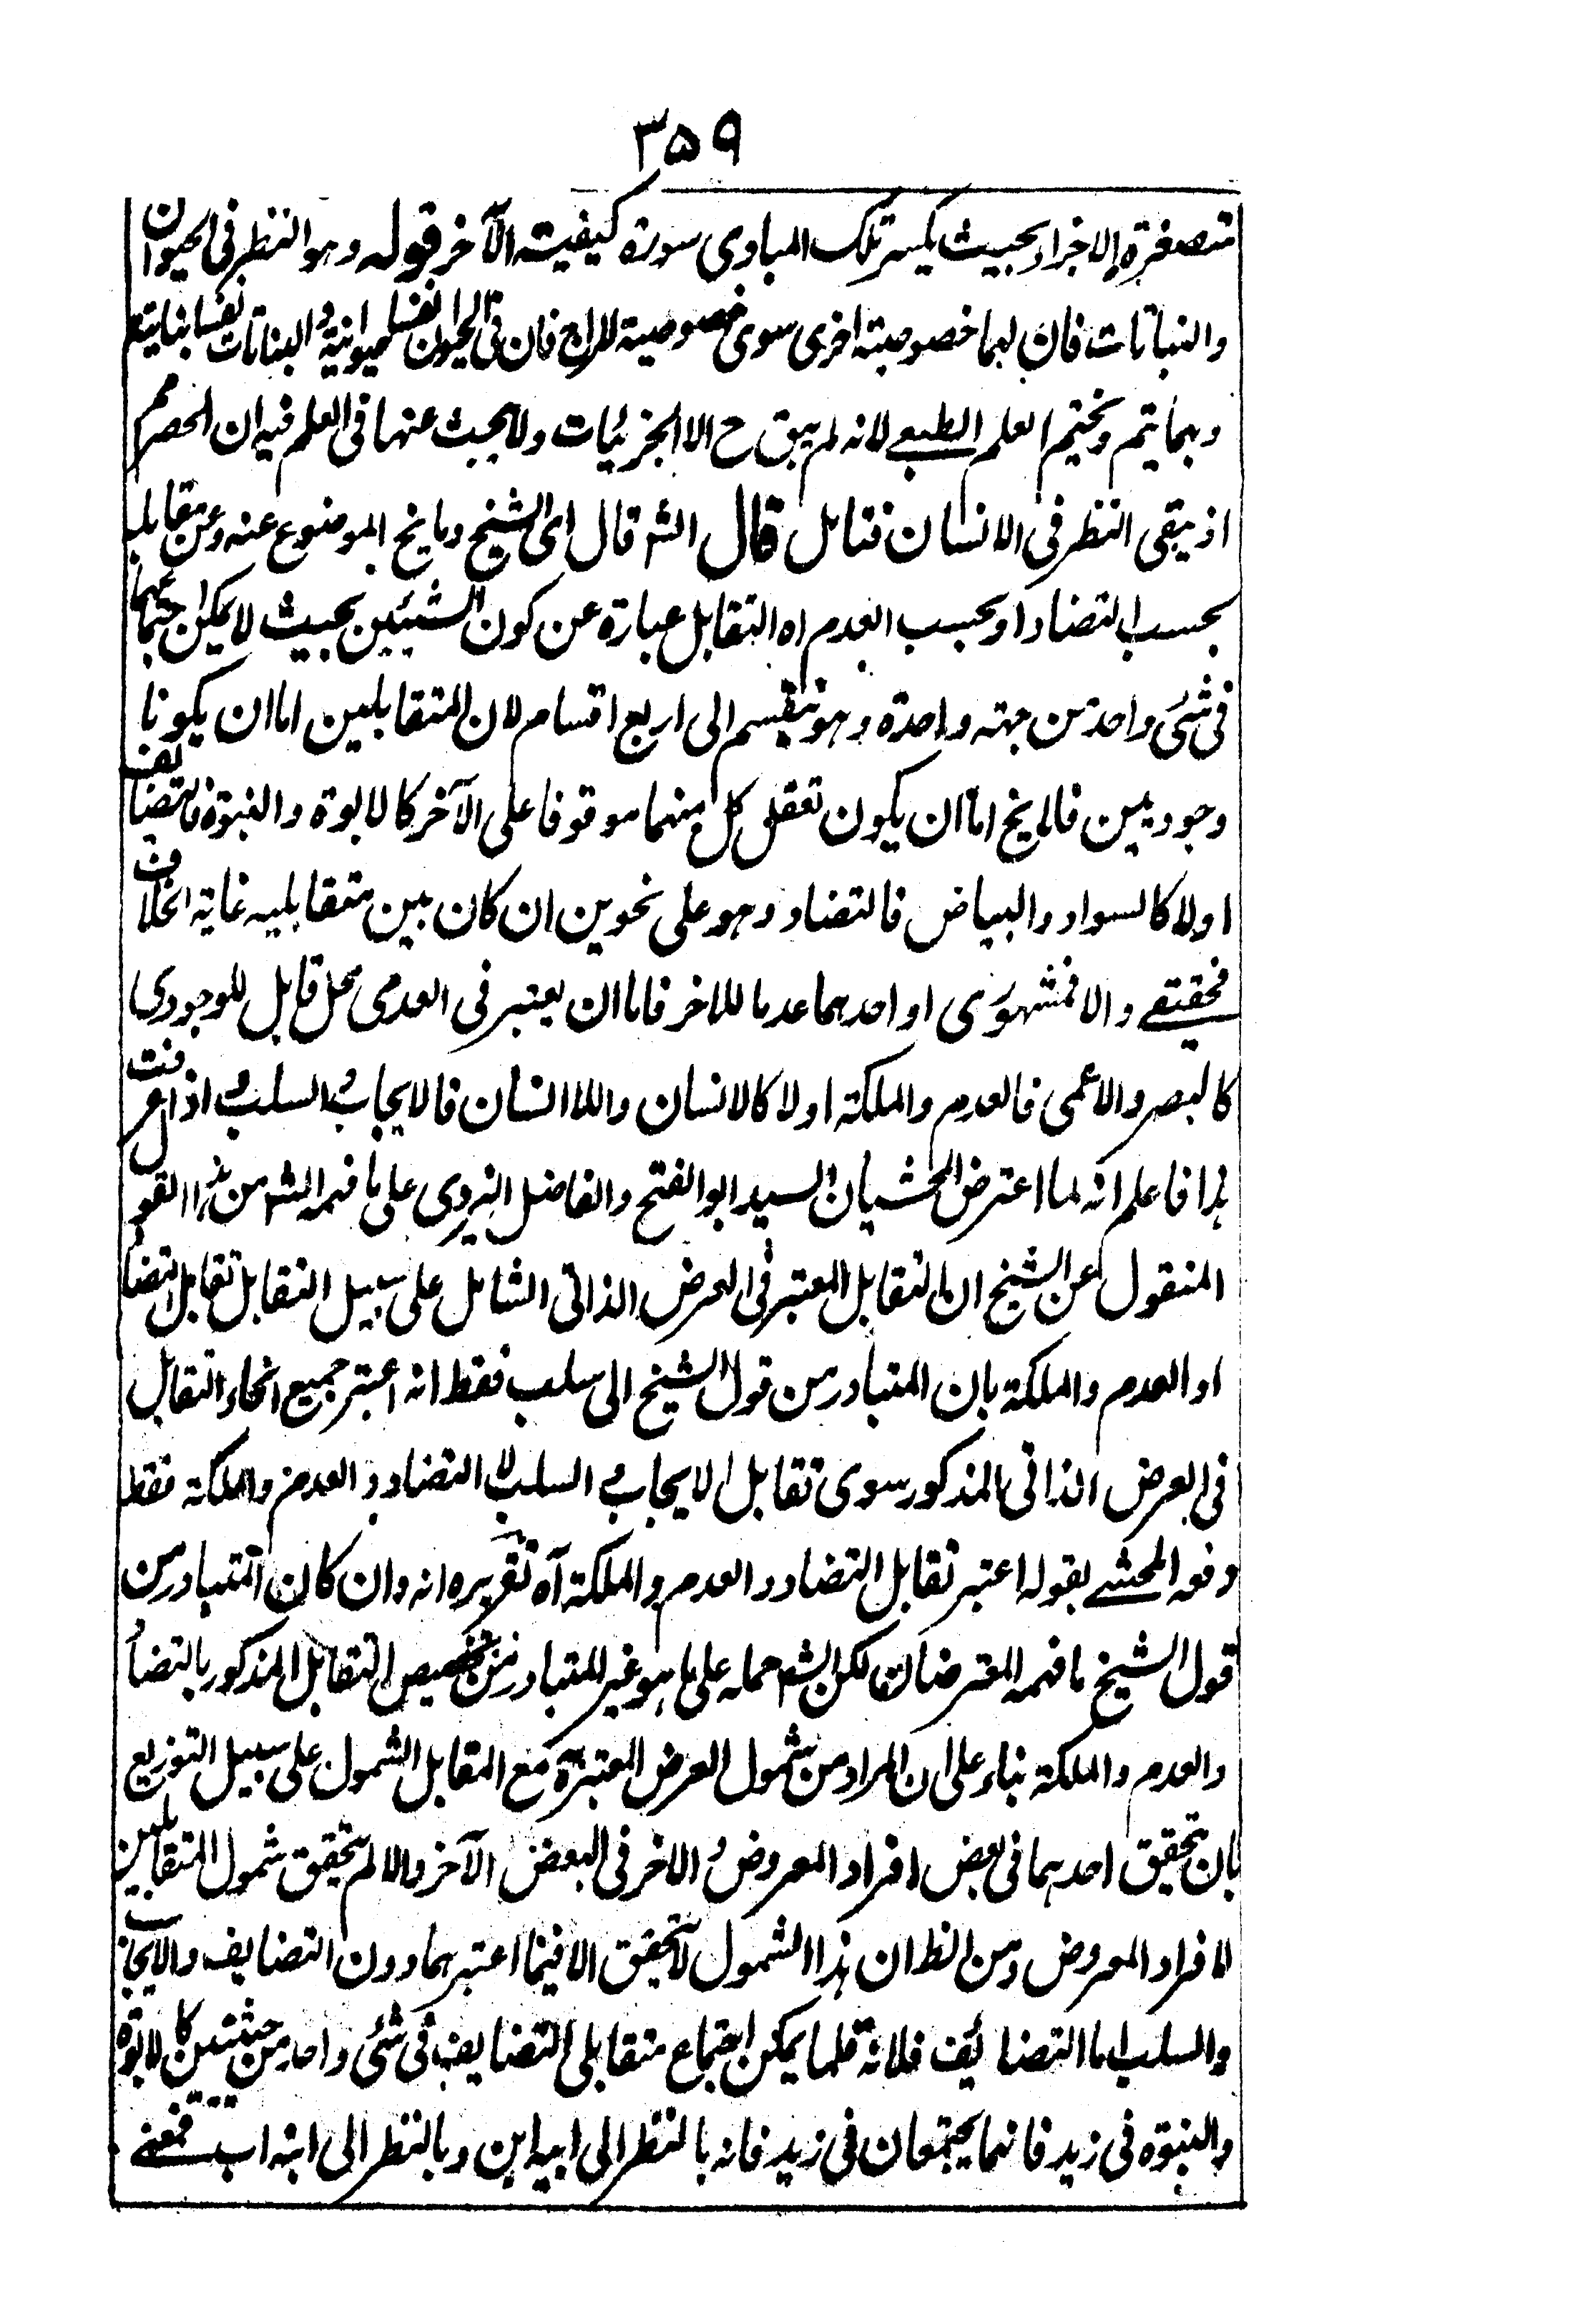 ۳۵۹
متصغرة الاجزاء بحيث يكسر تلك المبادى سورة كيفيته الآخر قوله وهو النظر فى الحيوان
والنباتات فان لهما خصوصية اخرى سوى خصوصية المزاج فان فى الحيوان نفسا حيوانية و النباتات نفسا نباتية
وبهما يتم ويختم العلم الطبعے لانه لم يبق ح الا الجزئيات ولا يبحث عنها فى العلم فيه ان الحصر مم
اذ يبقى النظر فى الانسان فتامل قال الشم قال اى الشيخ وما يخ الموضوع عنه وعن مقابله
بحسب التضاد او بحسب العدم اه التقابل عبارة عن كون الشيئين بحيث لا يمكن اجتماعهما
فى شئ واحد من جهته واحدة وهو ينقسم الى اربع اقسام لان المتقابلين اما ان يكونا
وجوديين فالا يخ اما ان يكون تعقل كل منهما موقوفا على الآخر كالابوة والبنوة فالتضايف
اولا كالسواد والبياض فالتضاد وهو على نحوين ان كان بين متقابليه غاية الخلاف
فحقيقے والا فمشهورى او احدهما عدما للاخر فاما ان يعتبر فى العدمى محل قابل للوجودى
كالبصر والاعمى فالعدم والملكة اولا كالانسان واللا انسان فالايجاب و السلب و اذا عرفت
هذا فاعلم انه لما اعترض المحشيان السيد ابو الفتح والفاضل اليزدى على ما فهمه الشم من هذا القول
المنقول عن الشيخ ان التقابل المعتبر فى العرض الذاتى الشامل على سبيل التقابل تقابل التضاد
او العدم والملكة بان المتبادر من قول الشيخ الى سلب فقط انه اعتبر جميع انحاء التقابل
فى العرض الذاتى المذكور سوى تقابل الايجاب و السلب لا التضاد و العدم والملكة فقط
دفعه المحشے بقوله اعتبر تقابل التضاد و العدم والملكة آه تقريره انه وان كان المتبادر من
قول الشيخ ما فهمه المعترضان لكن الشم حمله على ما هو غير المتبادر من تخصيص التقابل المذكور بالتضاد
والعدم والملكة بناء على ان المراد من شمول العرض المعتبرة مع المقابل الشمول على سبيل التوزيع
بان تحقق احدهما فى بعض افراد المعروض و الاخر فى البعض الآخر والا لم يتحقق شمول المتقابلين
لافراد المعروض ومن الظ ان هذا الشمول لا يتحقق الا فيما اعتبرهما دون التضايف والايجاب
والسلب اما التضائف فلانه قلما يمكن اجتماع متقابلى التضايف فى شئ واحد من حيثيتين كالابوة
والبنوة فى زيد فانهما يجتمعان فى زيد فانه بالنظر الى ابيه ابن وبالنظر الى ابنه اب فمعنے